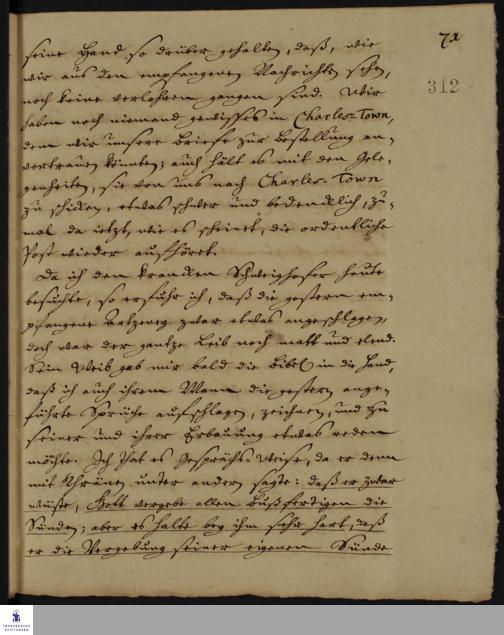 71
312
seine Hand so drüber gehalten, daß, wie
wir aus den empfangenen Nachrichten sehen,
noch keine verlohren gangen sind. Wir
haben noch niemand gewisses in Charles-Town,
dem wir unsere Briefe zur Bestellung an-
vertrauen könnten; auch hält es mit den Gele-
genheiten, sie von uns nach Charles-Town
zu schicken, etwas schwer und bedencklich, zu-
mal da jetzt, wie es scheinet, die ordentliche
Post wieder aufhöret.
Da ich den krancken Schweighofer heute
besuchte, so erfuhr ich, daß die gestern em-
pfangene Artzeney zwar etwas angeschlagen,
doch war der gantze Leib noch matt und elend.
Sein Weib gab mir bald die Bibel in die Hand,
daß ich auch ihrem Mann die gestern ange-
führte Sprüche aufschlagen, zeichnen, und zu
seiner und ihrer Erbauung etwas reden
möchte. Ich that es Gesprächs-Weise, da er denn
mit Thränen unter andern sagte: daß er zwar
wüste, Gott vergebe allen bußfertigen die
Sünden; aber es halte bey ihm sehr hart, daß
er die Vergebung seiner eigenen Sünde
FRANCKESCHE
STIFTUNGEN